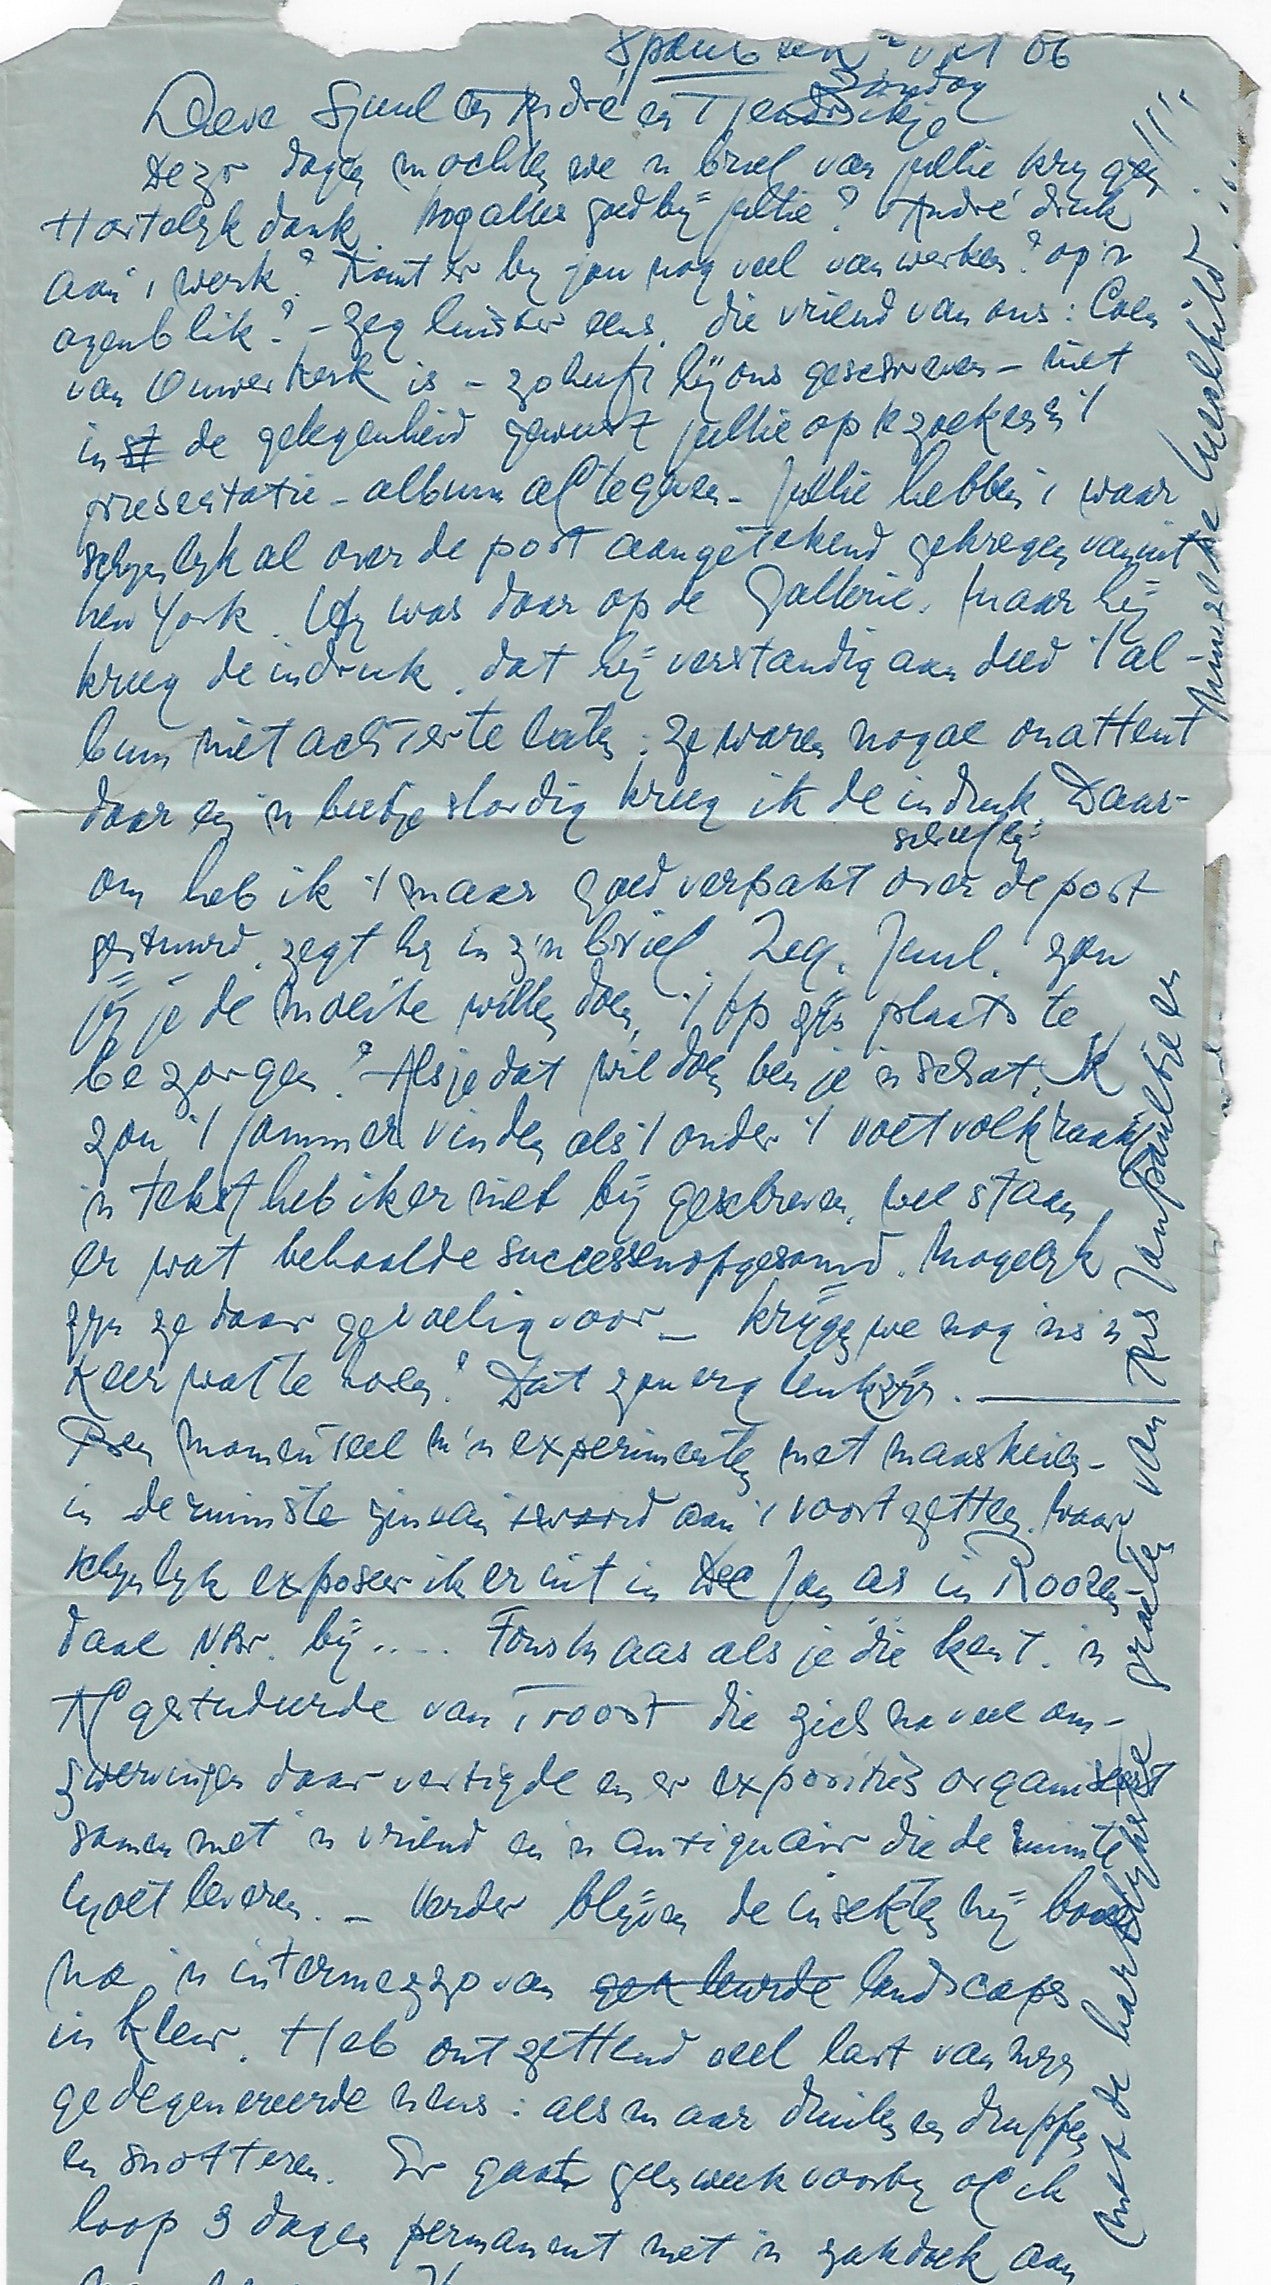 Spaubeek okt 66
Zondag
Lieve Sjuul en André en Tjendsikje
Deze dagen mochten we 'n brief van jullie krijgen!!!
Hartelijk dank. Nog alles goed bij jullie? André druk
aan 't werk? Komt er bij jou nog veel van werken? op 'n
ogenblik? - Zeg luister eens, die vriend van ons: Coen
van Ouwerkerk is - zo heeft hij ons geschreven - niet
in st de gelegenheid geweest jullie op te zoeken en 't
presentatie-album af te geven - Jullie hebben 't waar
schijnlijk al over de post aangetekend gekregen vanuit
New York. Hij was daar op de Gallerie. Maar hij
kreeg de indruk, dat hij verstandig aan deed 't al-
bum niet achter te laten: ze waren nogal onattent
daar en 'n beetje slordig kreeg ik de indruk Daar-
schreef hij
om heb ik 't maar goed verpakt over de post
gestuurd. zegt hij in z'n brief. Zeg, Juul, zou
jij je de moeite willen doen, 't op zijn plaats te
bezorgen? Als je dat wil doen ben je 'n schat. Ik
zou 't jammer vinden als 't onder 't voetvolk raakt
'n tekst heb ik er niet bij geschreven, wel staan
er wat behaalde successen opgesomd. Mogelijk
zijn ze daar gevoelig voor - krijgen we nog 'ns 'n
keer wat te horen? Dat zou erg leuk zijn.
Ben momenteel m'n experimenten met maaskeien-
in de ruimste zin van 't woord aan 't voortzetten. Waar
schijnlijk exposeer ik er uit in Dec Jan as in Roozen-
daal NBr. bij .... Fons Maas als je die kent. 'n
Afgestudeerde van Troost die zich na veel om-
zwervingen daar vestigde en er exposities organiseert
samen met 'n vriend en 'n antiquair die de ruimte
moet leveren. - Verder blijven de insekten mij boeien
na 'n intermezzo van gekleurde landscaps
in kleur. Heb ontzettend veel last van mijn
gedegenereerde neus: als maar druilen en druppen
en snotteren. Er gaat geen week voorbij of ik
loop 3 dagen permanent met 'n zakdoek aan
met de hartelijkste groeten van Ans Jan Paul